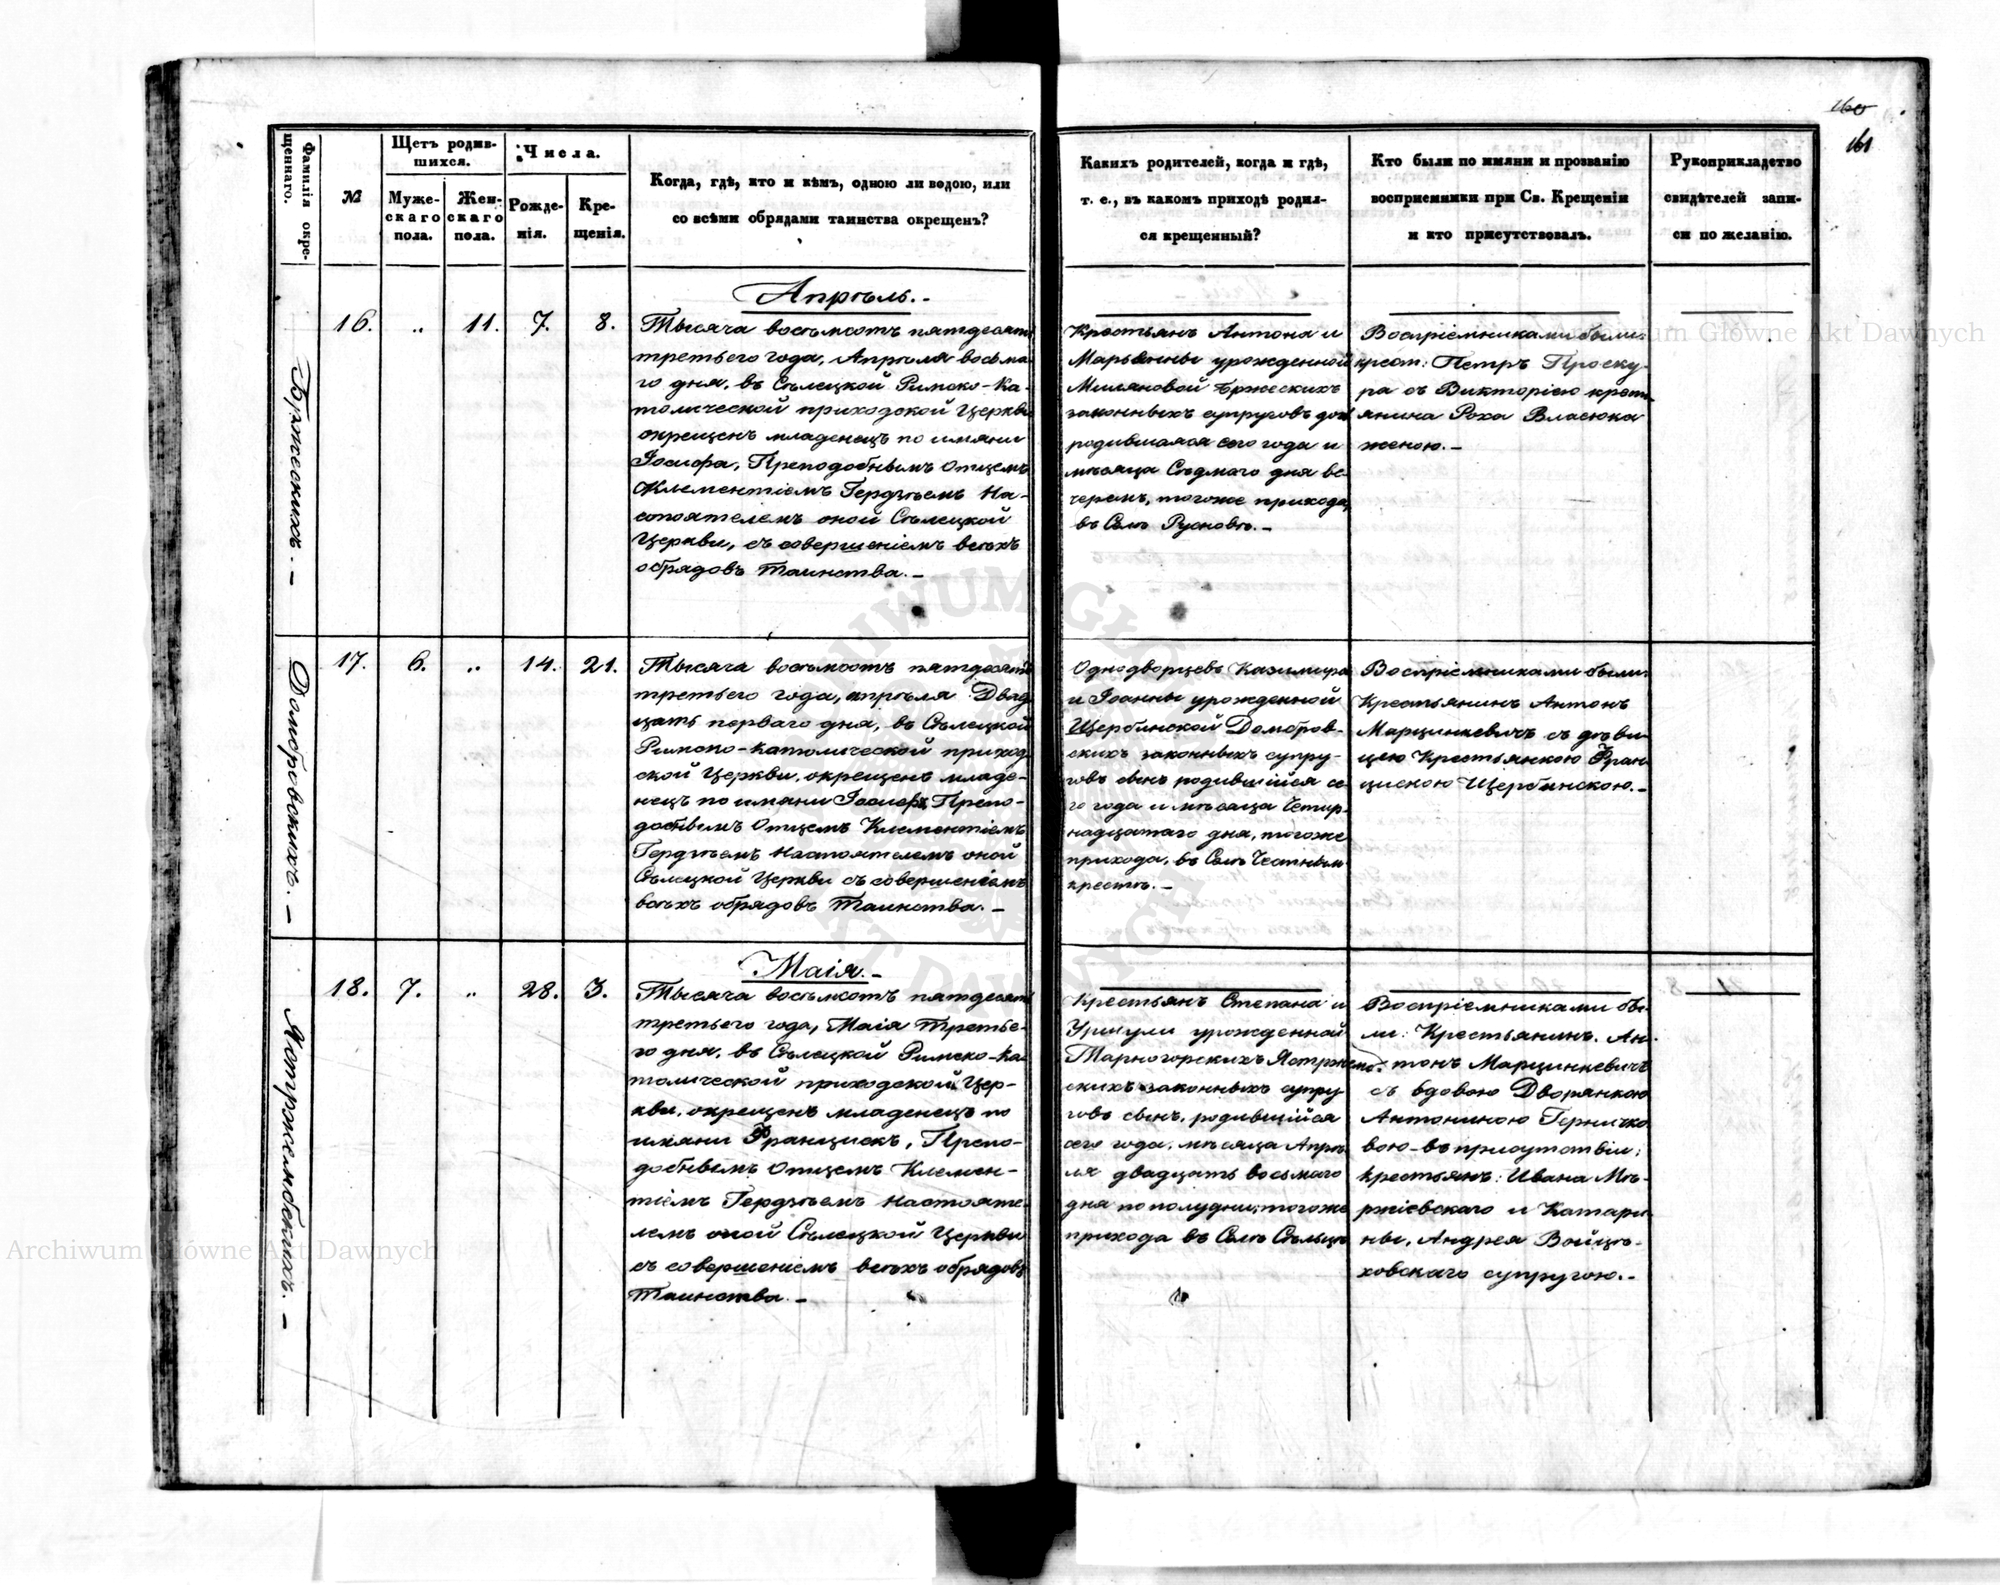 160
161
Фамилія окре-
щеннаго.
№
Щетъ родив-
шихся.
Муже-
скаго
пола.
Жен-
скаго
пола.
Числа.
Рожде-
нія.
Кре-
щенія.
Когда, гдѣ, кто и кѣмъ, одною ли водою, или
со всѣми обрядами таинства окрещенъ?
Какихъ родителей, когда и гдѣ,
т. е., въ какомъ приходѣ родил-
ся крещенный?
Кто были по имяни и прозванію
восприемники при Св. Крещеніи
и кто присутствовалъ.
Рукоприкладство
свидѣтелей запи-
си по желанію.
Бржескихъ.-
16. „ 11. 7. 8.
Апрѣль.-
Тысяча восѣмсотъ пятдесятъ
третьего года, Апрѣля восьма-
го дня, въ Сѣлецкой Римско-Ка-
толической приходской Церкви
окрещенъ младенецъ по имяни
Іосифа, Преподобнымъ Отцемъ
Клементіемъ Гердзѣемъ На-
стоятелемъ оной Сѣлецкой
Церкви, съ совершеніемъ всѣхъ
обрядовъ Таинства.-
Крестьянъ Антона и
Марьянны урожденной
Миляновой Бржескихъ
законныхъ супруговъ дочь
родившаяся сего года и
мѣсяца Седмаго дня ве-
черемъ, тогоже прихода,
въ Селѣ Русновѣ.-
Воспріемниками были:
крест: Петръ Проску-
ра съ Викторіею кресть-
янина Роха Власюка
женою.-
Домбровскихъ.-
17. 6. „ 14. 21.
Тысяча восѣмсотъ пятдесятъ
третьего года, апрѣля Двад-
цать перваго дня, въ Сѣлецкой
Римско-католической приход-
ской Церкви, окрещенъ младе-
нецъ по имяни Іосифъ Препо-
добнымъ Отцемъ Клементіемъ
Гердзѣемъ Настоятелемъ оной
Сѣлецкой Церкви съ совершеніемъ
всѣхъ обрядовъ Таинства.-
Однодворцевъ Казимира
и Іоанны урожденной
Щербинской Домбров-
скихъ законныхъ супру-
говъ сынъ родившійся се-
го года и мѣсяца Четыр-
надцатаго дня, тогоже
прихода, въ Селѣ Честным
крестѣ.-
Воспріемниками были:
Крестьянинъ Антонъ
Марцинкевичъ съ дѣви-
цею Крестьянкою Фран-
цискою Щербинскою.-
Ястржембскихъ.-
18. 7. „ 28. 3.
Маія.-
Тысяча восѣмсотъ пятдесятъ
третьего года, Маія Третье-
го дня, въ Сѣлецкой Римско-Ка-
толической приходской Цер-
кви, окрещенъ младенецъ по
имяни Францискъ, Препо-
добнымъ Отцемъ Клемен-
тіемъ Гердзѣемъ Настояте-
лемъ оной Сѣлецкой Церкви
съ совершеніемъ всѣхъ обрядовъ
Таинства.-
Крестьянъ Степана и
Уршули урожденной
Тарногорскихъ Ястржемб-
скихъ законныхъ супру-
говъ сынъ, родившійся
сего года, мѣсяца Апрѣ-
ля двадцать восьмаго
дня по полудни, тогоже
прихода въ Селѣ Сѣльцѣ
Воспріемниками бы-
ли: Крестьянинъ Ан-
тонъ Марцинкевичъ
съ вдовою Дворянкою
Антониною Герничко-
вою-въ присутствіи:
крестьянъ: Ивана Мѣ-
ржіевскаго и Катари-
ны, Андрея Войцѣ-
ховскаго супругою.-
Archiwum Główne Akt Dawnych
Archiwum Główne Akt Dawnych
ARCHIWUM GŁÓWNE AKT DAWNYCH